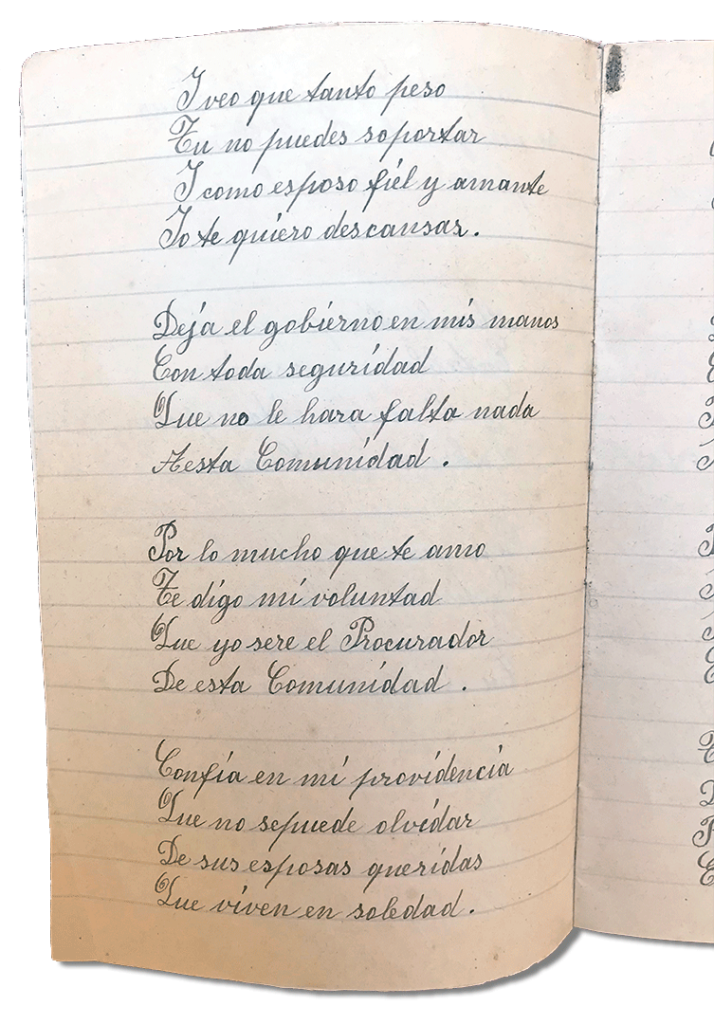 I veo que tanto peso
Tu no puedes soportar
I como esposo fiel y amante
Io te quiero descansar.
Deja el gobierno en mis manos
Con toda seguridad
Que no le hara falta nada
A esta Comunidad.
Por lo mucho que te amo
Te digo mi voluntad
Que yo sere el Procurador
De esta Comunidad.
Confia en mi providencia
Que no sepuede olvidar
De sus esposas queridas
Que viven en soledad.